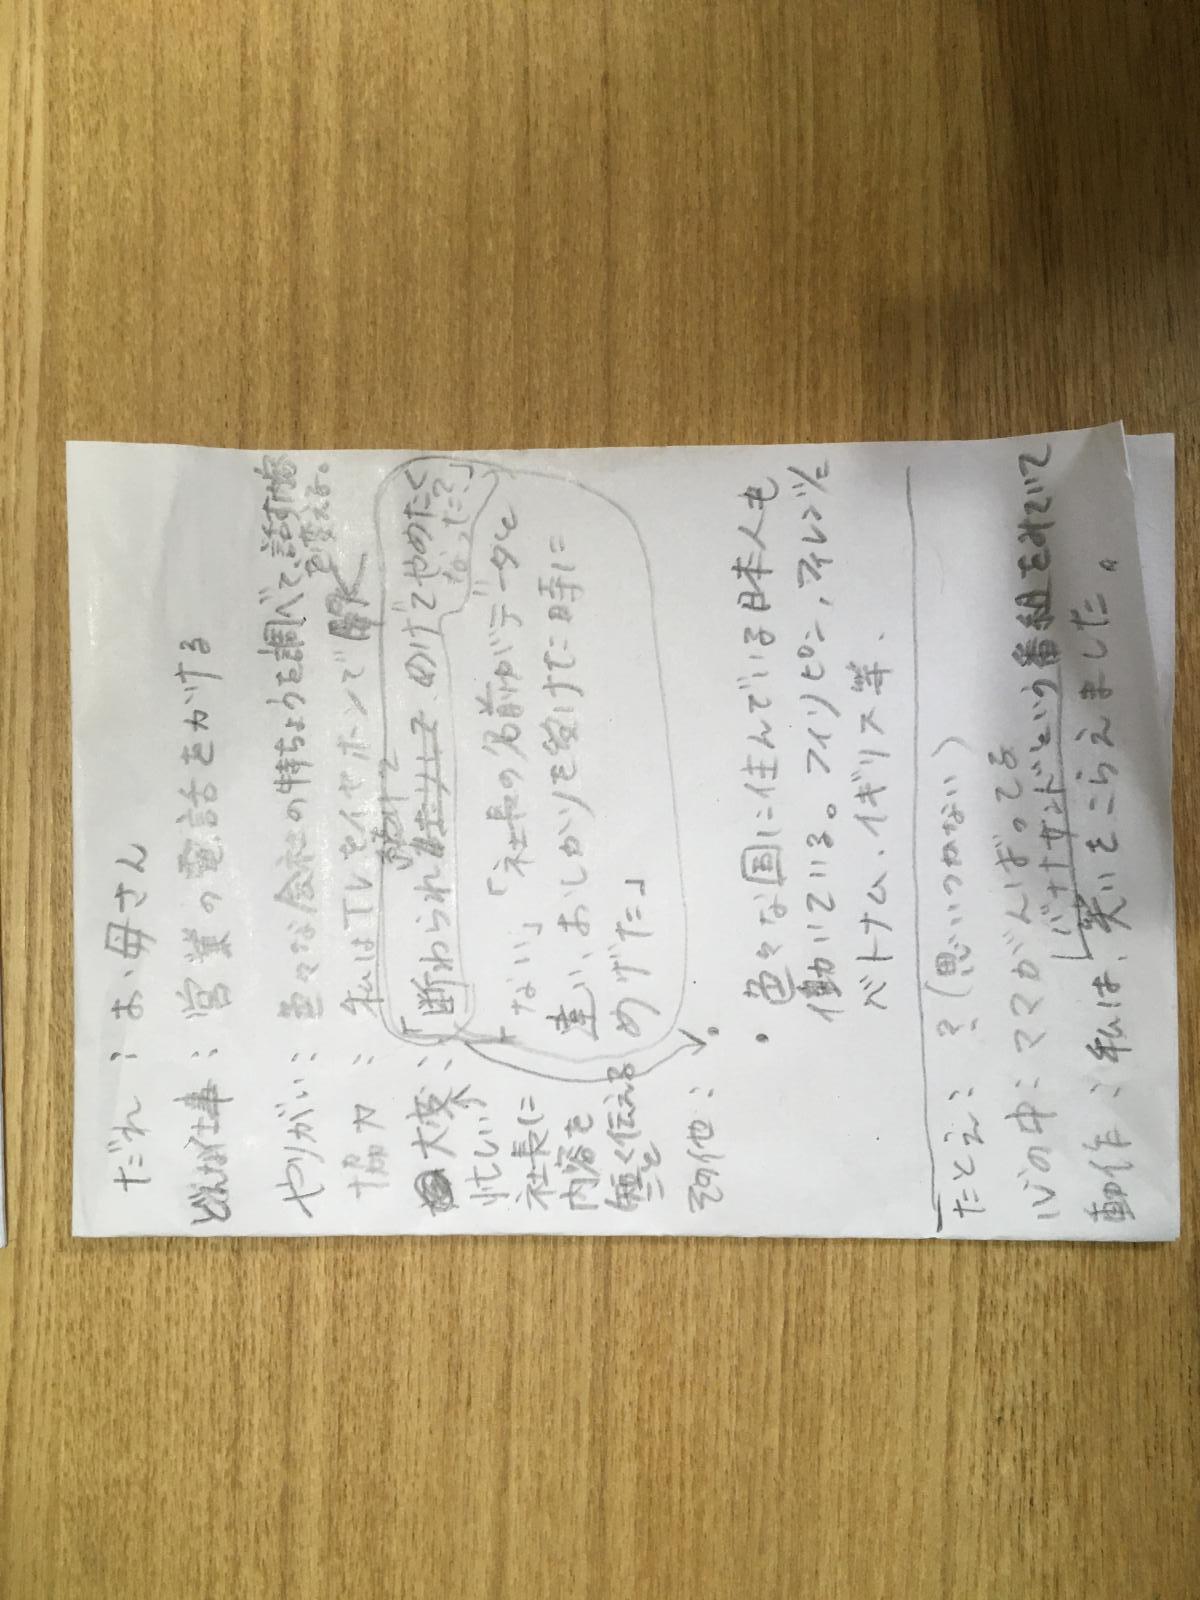 だれ：お母さん
どんな仕事：営業の電話をかける
やりがい：色々な会社の特ちょうを調べて、話す内容
を変える。
協力：私はTVをイヤホンで聞く
大変：「断わられ 続けて めげてやめたく
なった？」
忙しい
社長に
内容を
短く伝える
こと
「社長の名前がデータと
ない」
違い、おしかりを受けた時に
めげた」
その他：
・色々な国に住んでいる日本人も
働いている。フィリピン、アイルランド
ベトナム、イギリス等、
たとえ：？（思いつかない）
心の中：ママがんばってる
「バナナサンド」という番組をみていて
動作：私は、笑いをこらえました。